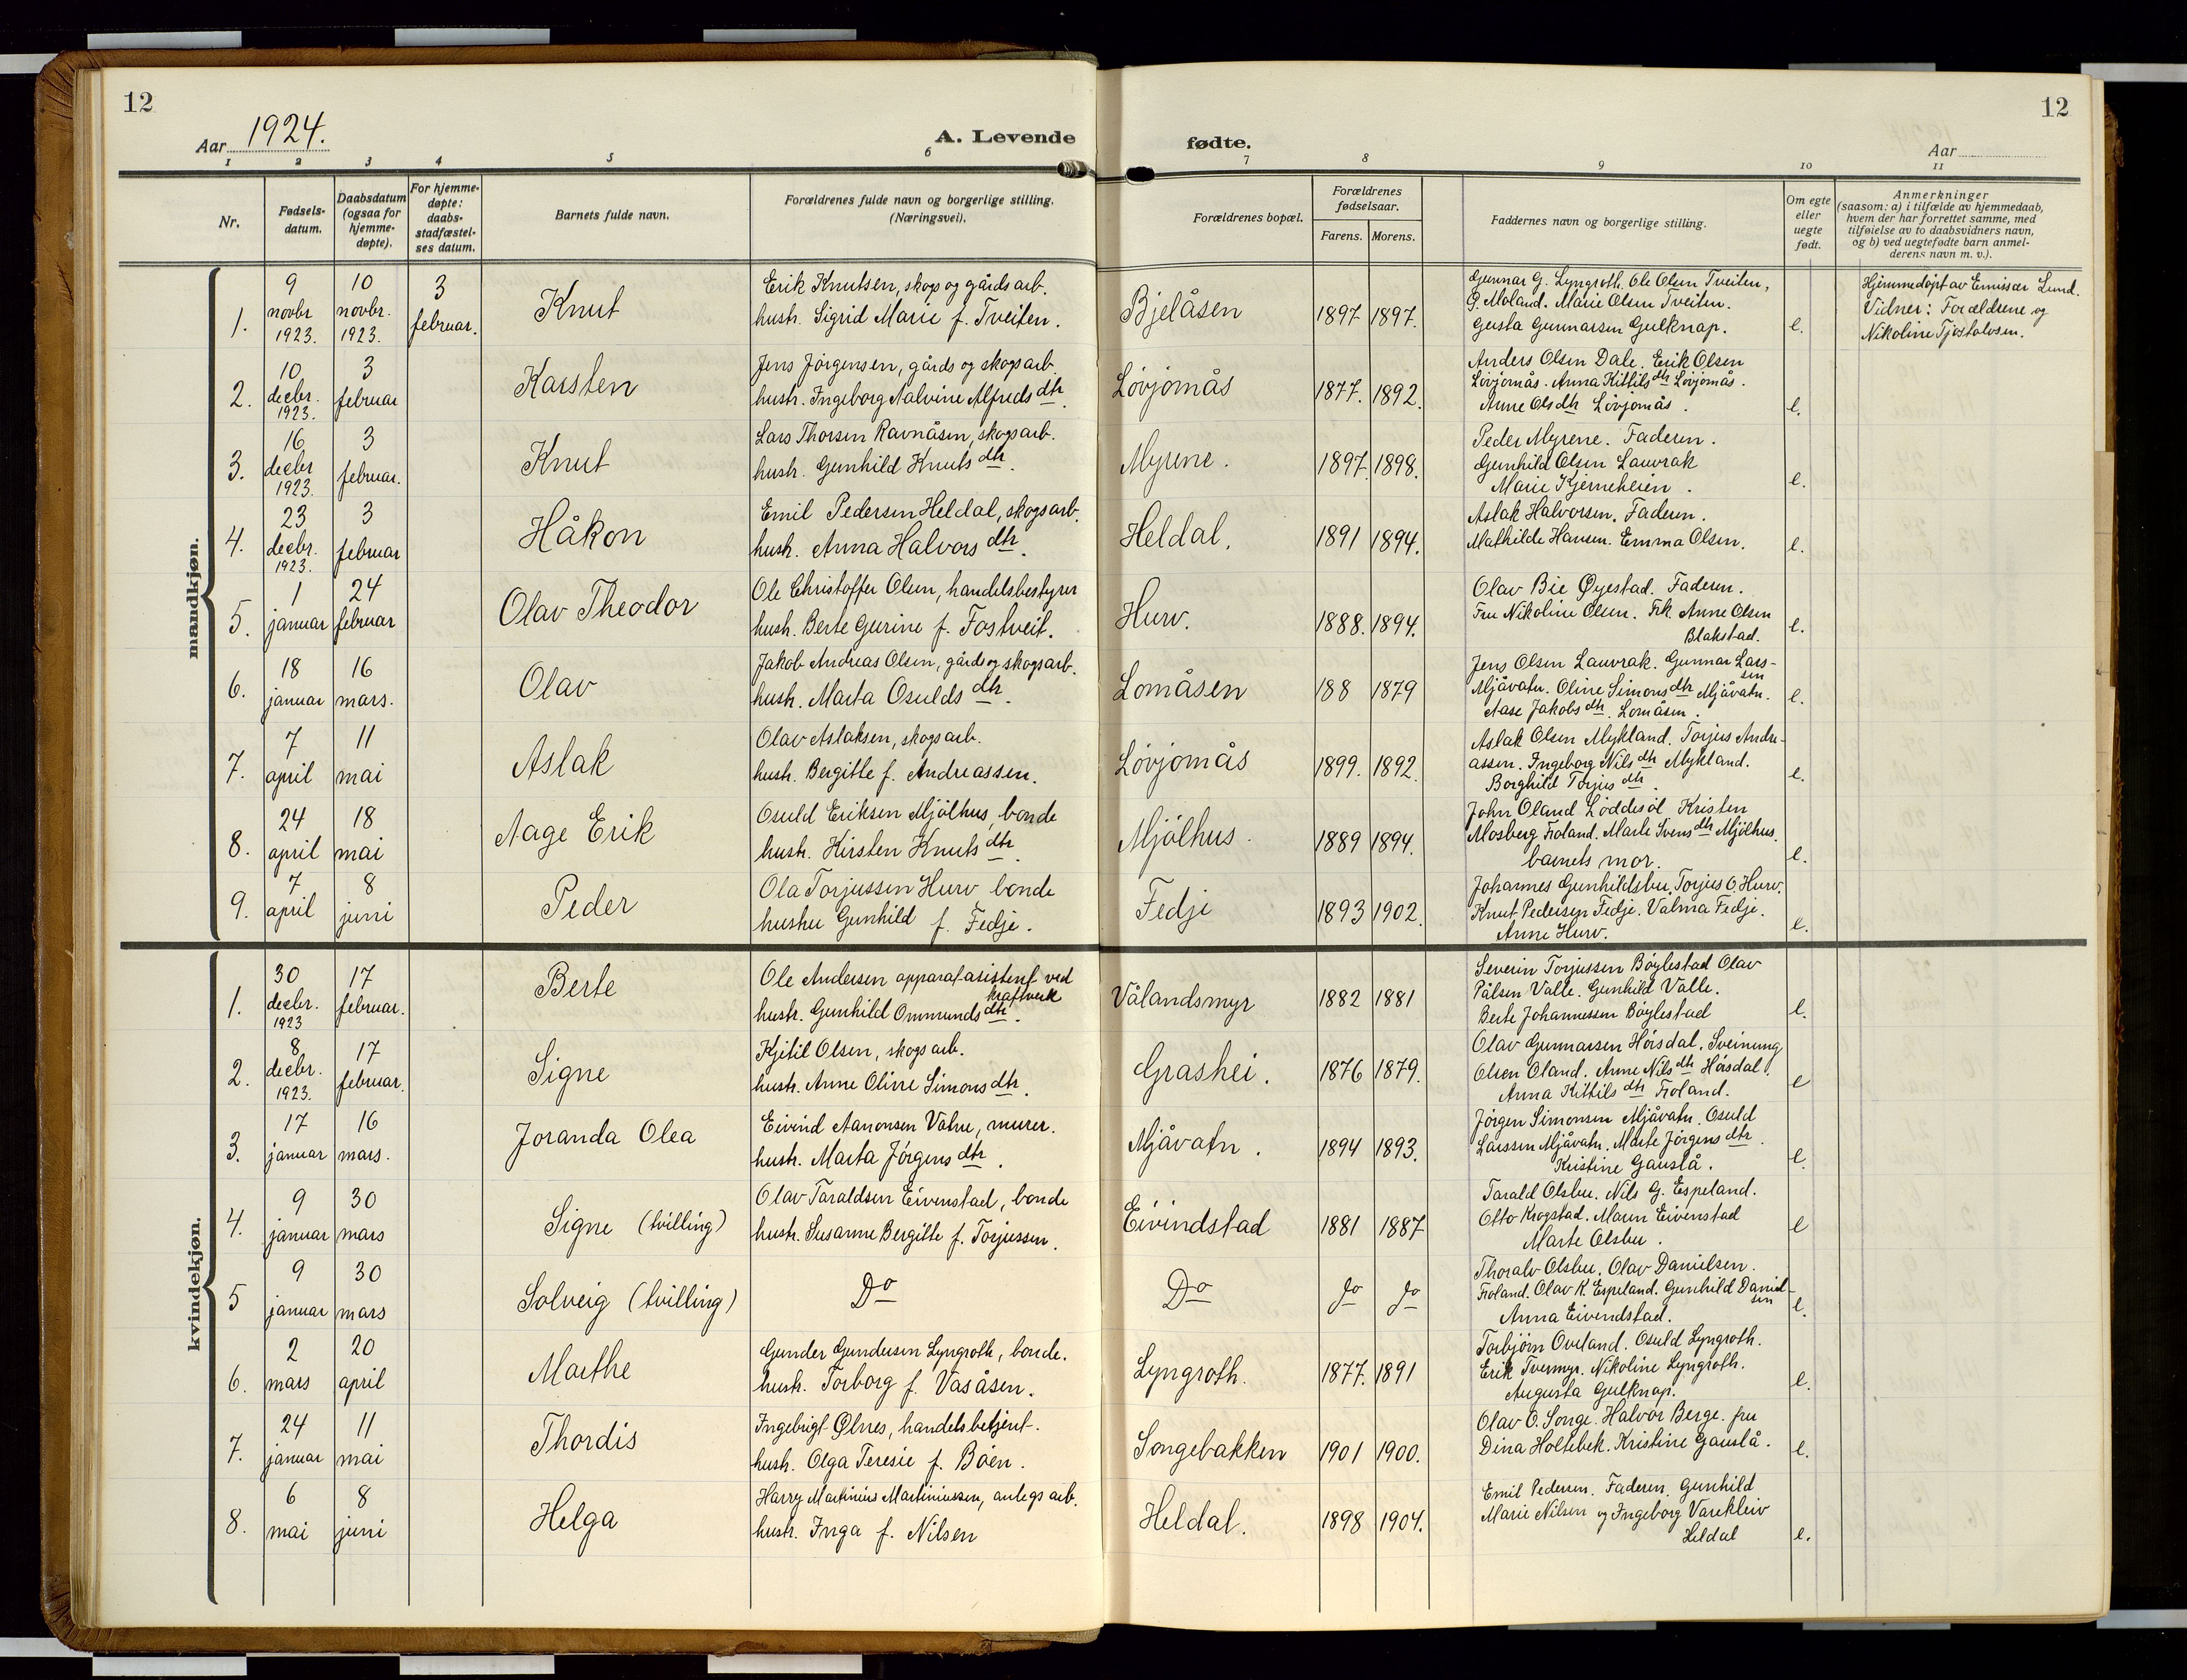 12
12
Aar 1924.
A. Levende
fødte.
Aar
1 2 3 4 5 6 7 8 9 10 11
Nr.
Fødsels-
datum.
Daabsdatum
(ogsaa for
hjemme-
døpte).
For hjemme-
døpte:
daabs-
stadfæstel-
ses datum.
Barnets fulde navn.
Forældrenes fulde navn og borgerlige stilling.
(Næringsvei).
Forældrenes bopæl.
Forældrenes
fødselsaar.
Farens. Morens.
Faddernes navn og borgerlige stilling.
Om egte
eller
uegte
født.
Anmerkninger
(saasom: a) i tilfælde av hjemmedaab,
hvem der har forrettet samme, med
tilføielse av to daabsvidners navn,
og b) ved uegtefødte barn anmel-
derens navn m. v.).
mandkjøn.
1.
9
novbr
1923.
10
novbr.
1923.
3
februar.
Knut
Erik Knutsen, skogs og gårdsarb.
hustr. Sigrid Marie f. Tveiten.
Bjelåsen
1897 1897.
Gunnar G. Lyngroth. Ole Olsen Tveiten,
G. Moland. Marie Olsen Tveiten.
Gusta Gunnarsen Gulknap.
e.
Hjemmedøpt av Emissær Lund.
Vidner: Forældrene og
Nikoline Tjostolvsen.
2.
10
decbr.
1923.
3
februar
Karsten
Jens Jörgensen, gårds og skogsarb.
hustr. Ingeborg Nalvine Alfreds dtr.
Lövjomås
1877. 1892.
Anders Olsen Dale. Erik Olsen
Lövjomås. Anna Kittils dtr Lövjomås.
Anne Ols dtr Lövjomås.
e.
3.
16
decbr
1923.
3
februar.
Knut
Lars Thorsen Ravnåsen, skogsarb.
hustr. Gunhild Knuts dtr.
Myrene.
1897. 1898.
Peder Myrene. Faderen.
Gunhild Olsen Lauvrak
Marie Kjerneheien.
e.
4.
23
decbr.
1923.
3
februar
Håkon
Emil Pedersen Heldal, skogsarb.
hustr. Anna Halvors dtr.
Heldal.
1891 1894.
Aslak Halvorsen. Faderen.
Mathilde Hansen. Emma Olsen.
e.
5.
1
januar
24
februar
Olav Theodor
Ole Christoffer Olsen, handelsbestyrer
hustr. Berte Gurine f. Fostveit.
Hurv.
1888. 1894.
Olav Bie Øyestad. Faderen.
Fru Nikoline Olsen. Frk. Anne Olsen
Blakstad.
e.
6.
18
januar
16
mars.
Olav
Jakob Andreas Olsen, gårds og skogsarb.
hustr. Marta Osulds dtr.
Lomåsen
188 1879
Jens Olsen Lauvrak. Gunnar Lars-
sen
Mjåvatn. Oline Simons dtr Mjåvatn.
Aase Jakobs dtr. Lomåsen.
e.
7.
7
april
11
mai
Aslak
Olav Aslaksen, skogsarb.
hustr. Bergitte f. Andreassen.
Lövjomås
1899. 1892.
Aslak Olsen Mykland. Torjus Andre-
assen. Ingeborg Nils dtr Mykland.
Borghild Torjus dtr.
e.
8.
24
april
18
mai
Aage Erik
Osuld Eriksen Mjölhus, bonde
hustr. Kirsten Knuts dtr.
Mjölhus.
1889 1894.
John Oland Löddesöl Kristen
Mosberg Froland. Marte Svens dtr Mjölhus.
barnets mor.
e.
9.
7
april
8
juni
Peder
Ola Torjussen Hurv bonde
hustru Gunhild f. Fedje.
Fedje
1893 1902.
Johannes Gunhildsbu, Torjus O. Hurv.
Knut Pedersen Fedje. Valma Fedje.
Anne Hurv.
e.
kvindekjøn.
1.
30
decbr.
1923
17
februar.
Berte
Ole Andersen apparatasistent ved
kraftverk
hustr. Gunhild Ommunds dtr.
Vålandsmyr
1882 1881
Severin Torjussen Böylestad Olav
Pålsen Valle. Gunhild Valle.
Berte Johannessen Böylestad
e.
2.
8
decbr.
1923.
17
februar.
Signe
Kjetil Olsen, skogsarb.
hustr. Anne Oline Simons dtr.
Grashei.
1876 1879.
Olav Gunnarsen Höisdal. Sveinung
Olsen Oland. Anne Nils dtr Höisdal.
Anna Kittils dtr Froland.
e
3.
17
januar
16
mars.
Joranda Olea
Eivind Aanonsen Vatne, murer.
hustr. Marta Jörgens dtr.
Mjåvatn.
1894 1893.
Jörgen Simonsen Mjåvatn. Osuld
Larssen Mjåvatn. Marte Jörgens dtr.
Kristine Gauslå.
e.
4.
9
januar
30
mars
Signe (tvilling)
Olav Taraldsen Eivenstad, bonde
hustr. Susanne Bergitte f. Torjussen.
Eivindstad
1881 1887
Tarald Olsbu. Nils G. Espeland.
Otto Krogstad. Maren Eivenstad
Marte Olsbu.
e
5
9
januar
30
mars
Solveig (tvilling)
Do
Do
do do
Thoralv Olsbu. Olav Danielsen.
Froland. Olav K. Espeland. Gunhild Daniel-
sen
Anna Eivendstad.
e.
6.
2
mars
20
april
Marthe
Gunder Gundersen Lyngroth, bonde.
hustr. Torborg f. Vasåsen.
Lyngroth.
1877. 1891
Torbjørn Oveland. Osuld Lyngroth.
Erik Tvermyr. Nikoline Lyngroth.
Augusta Gulknap.
e.
7.
24
januar
11
mai
Thordis
Ingebrigt Ølnes, handelsbetjent.
hustr. Olga Teresie f. Böen.
Songebakken
1901 1900.
Olav O. Songe. Halvor Berge. fru
Dina Holtebek. Kristine Gauslå.
e.
8.
6
mai
8
juni
Helga
Harry Markinius Martiniussen, anlegsarb.
hustr. Inga f. Nilsen
Heldal.
1898 1904.
Emil Pedersen. Faderen. Gunhild
Marie Nilsen og Ingeborg Varekleiv
Heldal
e.